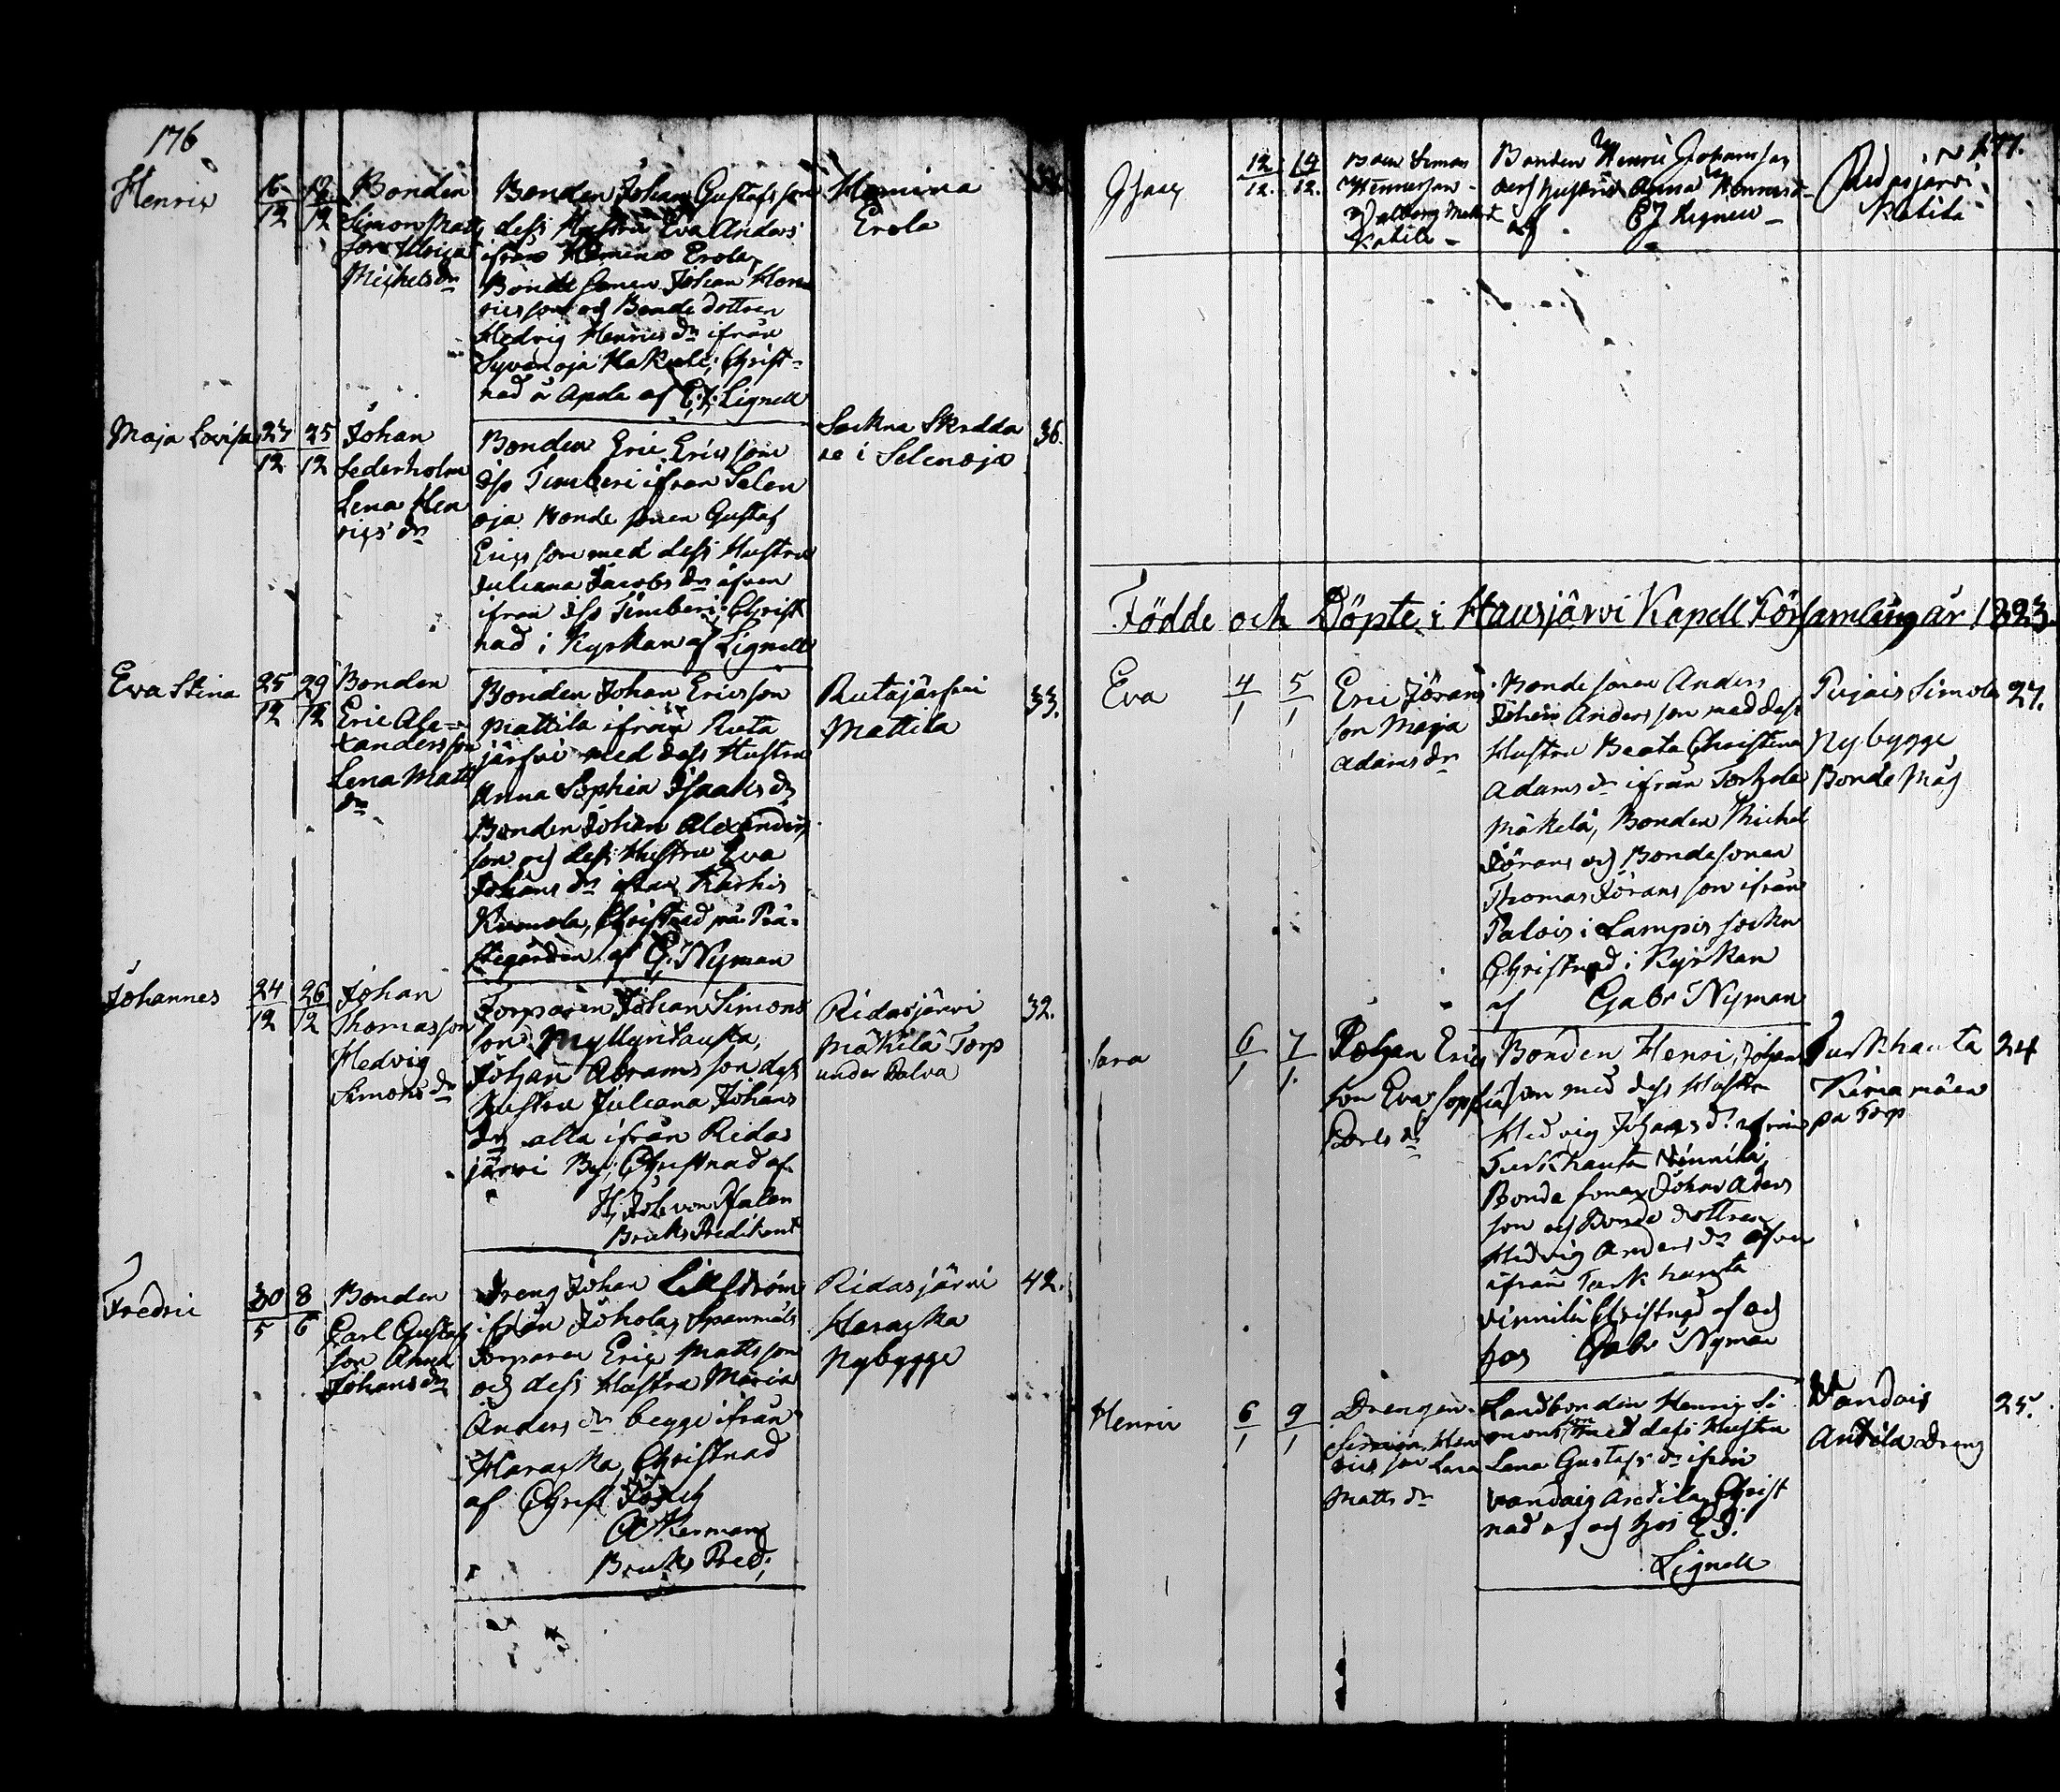 176
Henric
16 18
12 12
Bonden
Simon Matts
son Maja
Michels dr
Bonden Johan Gustafsson
dess Hustru Eva Anders
ifrån Hamina Erola,
Bonde sonen Johan Hen
ricsson och Bonde dottren
Hedvig Henrics dr ifrån
Syvänoja Kakola; Christ=
nad å Apola af E: J: Lignell
Hamina
Erola
Maja Lovisa
23 25
12 12
Johan
Sederholm
Lena Hen
rics dr
Bonden Eric Ericsson
Iso Timberi ifrån Selen
oja Bonde sonen Gustaf
Ericsson med dess Hustru
Juliana Jacobs dr äfven
ifrån Iso Timberi; Christ
nad i Kyrkan af Lignell
Sockne Skredda
re i Selenoja
36.
Eva Stina
25 29
12 12
Bonden
Eric Ale=
xandersson
Lena Matts
dr
Bonden Johan Ericsson
Mattila ifrån Ruta
järfvi med dess Hustru
Anna Sophia Isaaks dr
Bonden Johan Alexanders
son och dess Hustru Eva
Johans dr ifrån Karhis
Kuumola, Christnad på Prä=
stegården af G. Nyman
Rutajärfvi
Mattila
33.
Johannes
24 26
12 12
Johan
Thomasson
Hedvig
Simons dr
Torparen Johan Simons
son Myllyntausta,
Johan Abramsson dess
Hustru Juliana Johans
dr alla ifrån Ridas
järvi By; Christnad af
H, Joh von Pfalen
Bruks Predikant
Ridasjärvi
Mäkilä Torp
under Palva
32.
Fredric
30 8
5 6
Bonden
Carl Gustaf
son Anna
Johans dr
Dreng Johan Lillström
ifrån Jokola, Spanmåls
Torparen Eric Mattsson
och dess Hustru Maria
Anders dr begge ifrån
Haraska, Christnad
af Christ
Åkerman
Bruks Pred;
Ridasjärvi
Haraska
Nybygge
42.
177.
Isaac
12 14
12. 12.
Bon Simon
Henricson
Valborg Matts d
Katila
Bonden Henric Johansson
och Hustrun Anna Henrics d
af EJ Lignell
Ridasjärvi
Katila
Födde och Döpte i Hausjärvi Kapell Församling år 1823.
Eva
4 5
1 1
Eric Jörans
son Maja
Adams dr
Bonde sonen Anders
Johan Andersson med dess
Hustru Beata Christina
Adams dr ifrån
Mäkelä, Bonden Michel
Jörans och Bondesonen
Thomas Jöransson ifrån
Palois i Lampis socken
Christnad i Kyrkan
af Gabr Nyman
Pujais Simola
Nybygge
Bonde Måg
27.
Sara
6 7
1 1.
Johan Erics
son Eva Sophia
Carls dr
Bonden Henric Johans
son med dess Hustru
Hedvig Johans dr ifrån
Turkhauta Nimnilä
Bonde sonen Johan Anders
son och Bonde dottren
Hedvig Anders dr äfven
ifrån Turkhauta
Nimnilä Christnad af och
hos Gabr Nyman
Turkhauta
pa Torp
24
Henric
6 9
1 1
Drengen
Simon Hen
ricsson Lena
Matts dr
Landbonden Henric Si
monsson med dess Hustru
Lena Gustafs dr ifrån
Vandais Andila Christ
nad af och hos E J.
Lignell
Vandais
Andila Dreng
25.